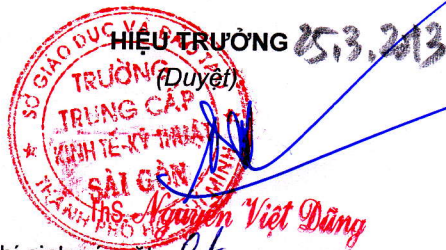 HIỆU TRƯỞNG 25.3.2013
(Duyệt)
SỞ GIÁO DỤC VÀ ĐÀO TẠO
TRƯỜNG
TRUNG CẤP
KINH TẾ-KỸ THUẬT
SÀI GÒN
THÀNH PHỐ HỒ MINH
ThS. Nguyễn Việt Dũng